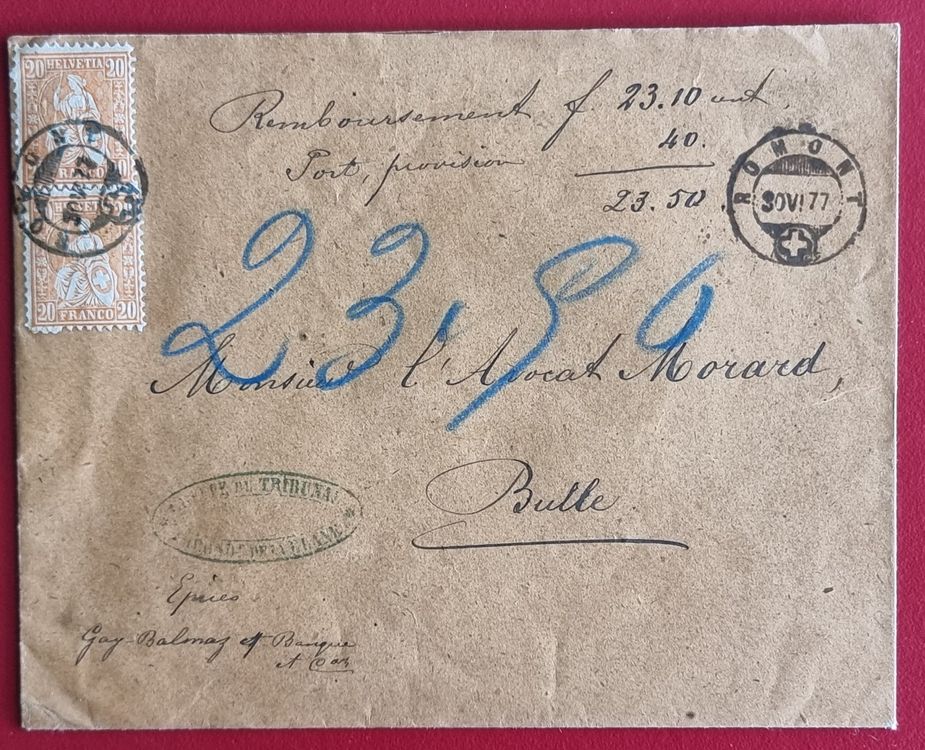 20 HELVETIA 20
FRANCO
20 FRANCO 20
ROMONT
Remboursement f. 23.10 cnt.
40.
Port, provision
23.50.
ROMONT
30 VI 77
23.50
Monsieur l'Avocat Morard,
Bulle
DU TRIBUNAL
DE LA GLANE
Epices
Gay-Balmaz et Banque